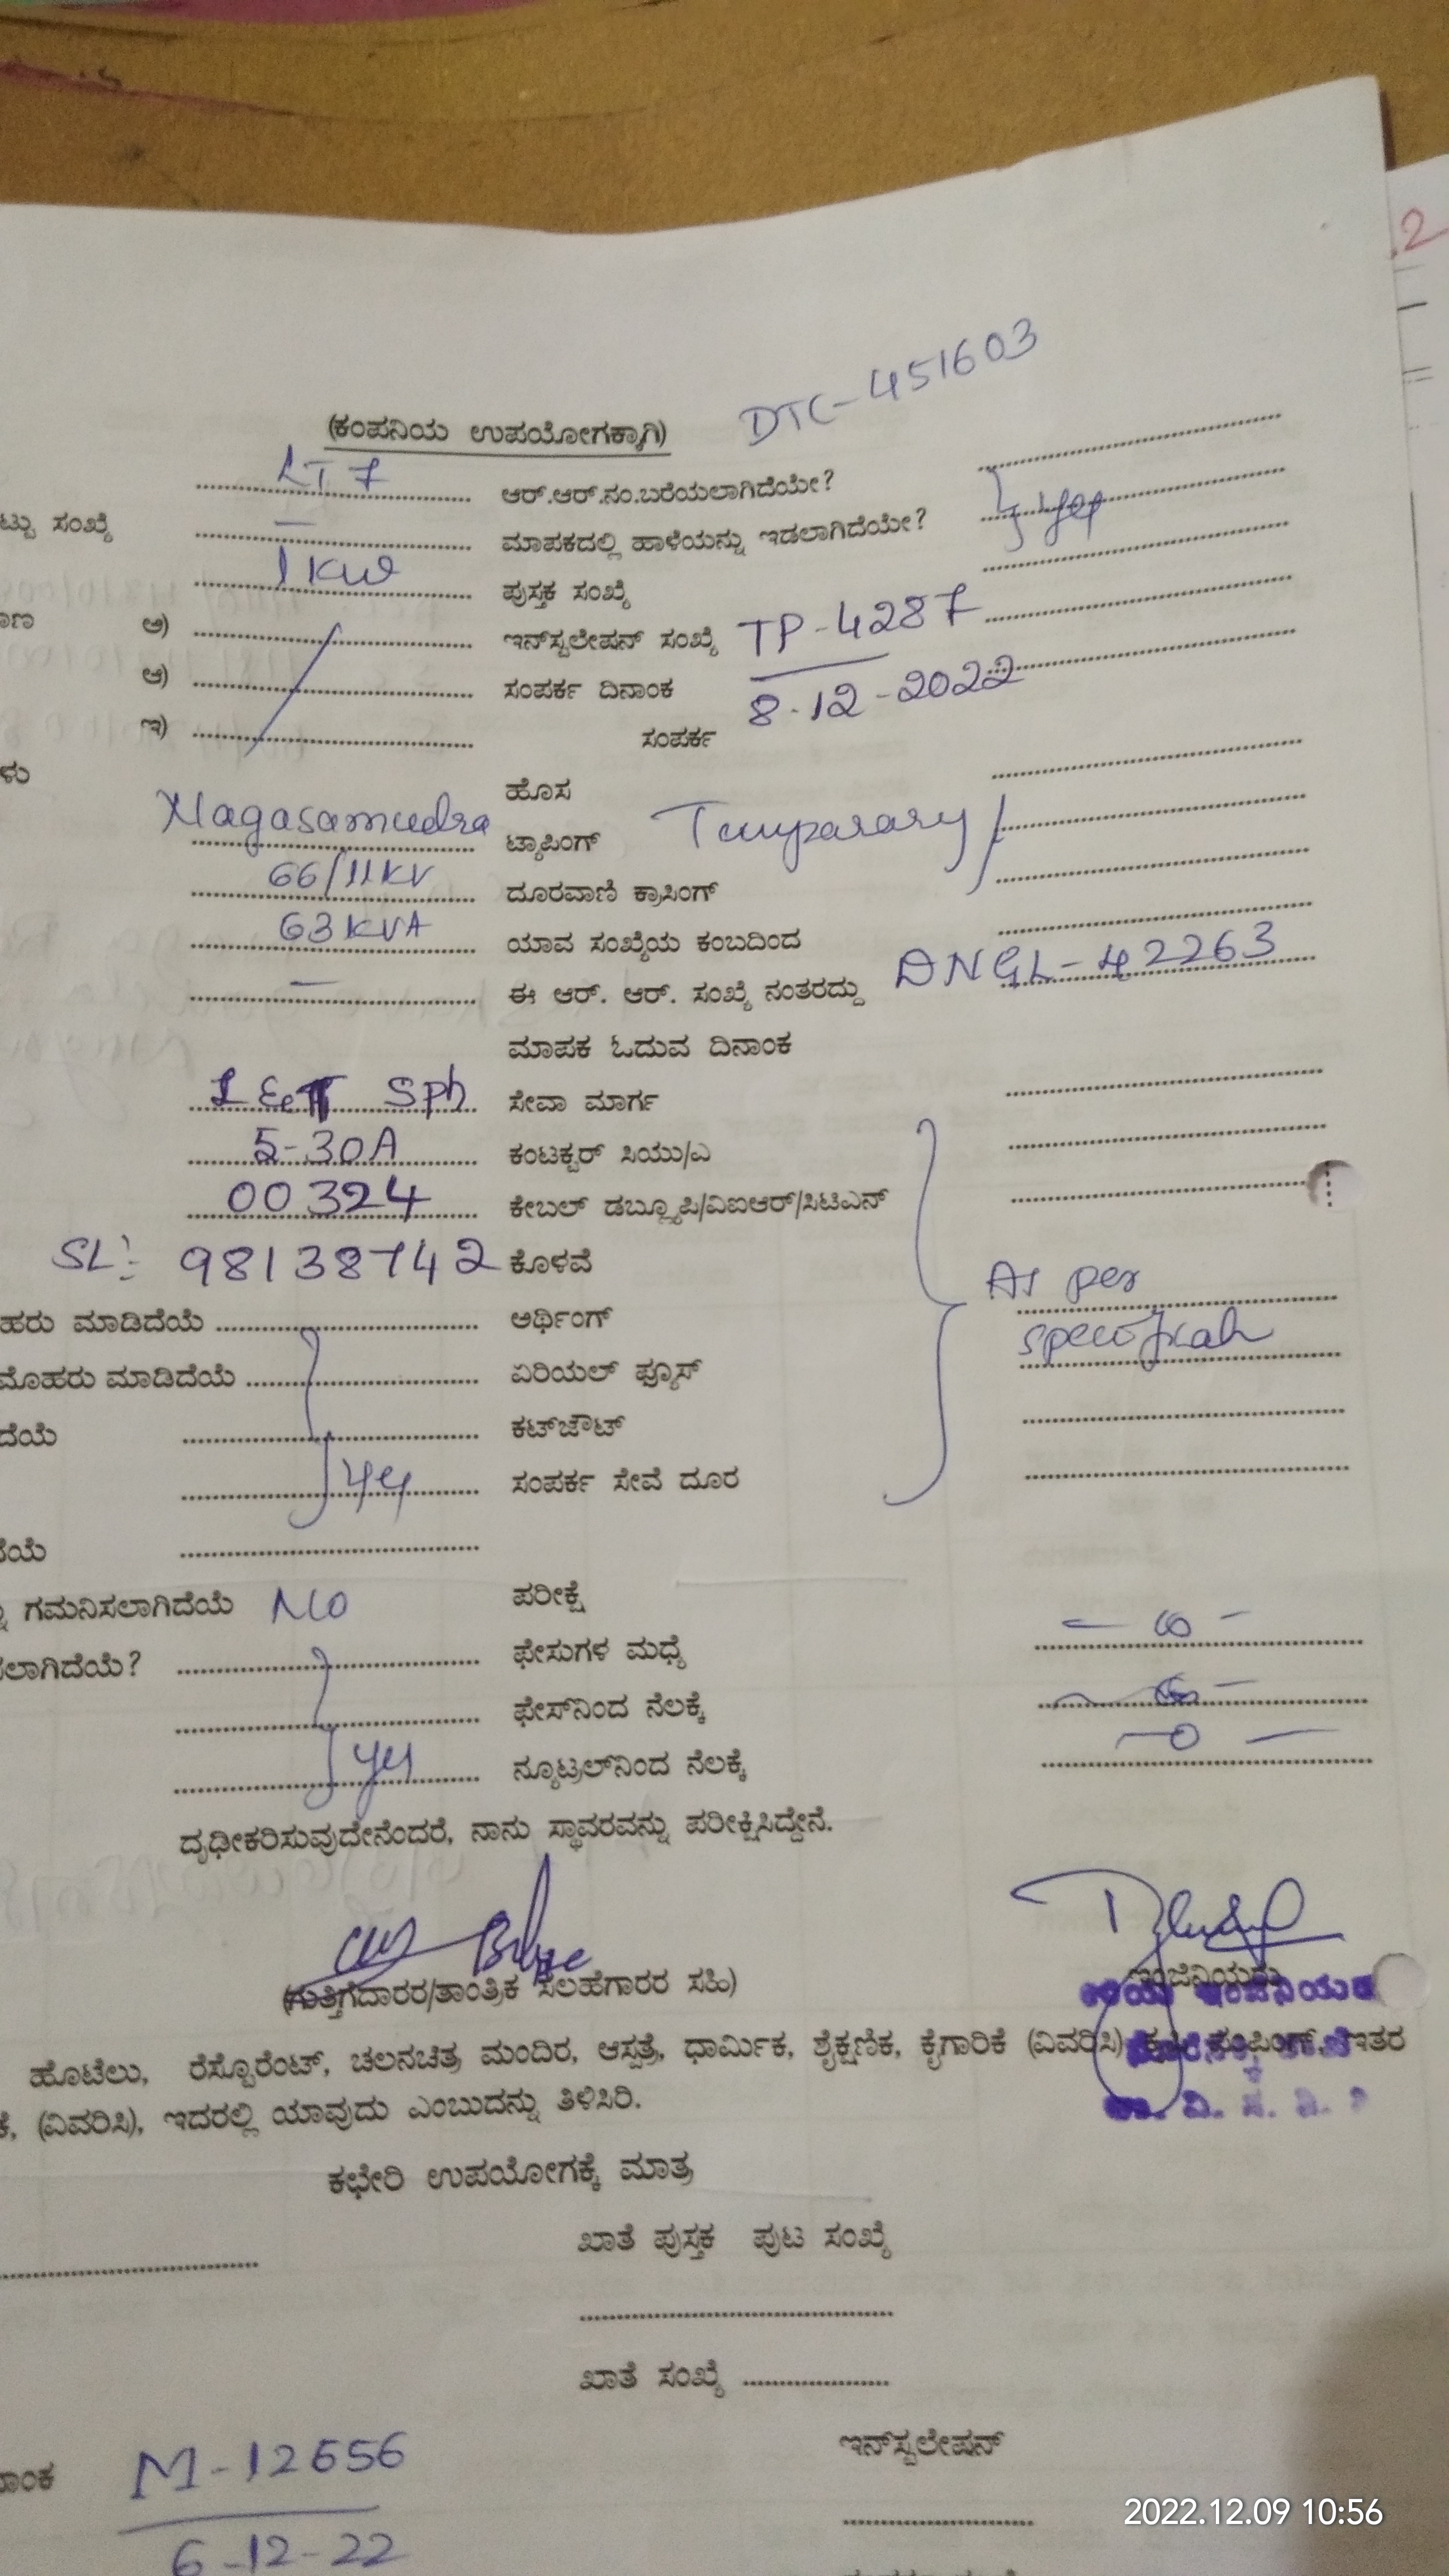 .2
DTC-451603
(ಕಂಪನಿಯ ಉಪಯೋಗಕ್ಕಾಗಿ)
LT 7 ಆರ್.ಆರ್.ನಂ.ಬರೆಯಲಾಗಿದೆಯೇ?
ಸಂಖ್ಯೆ — ಮಾಪಕದಲ್ಲಿ ಹಾಳೆಯನ್ನು ಇಡಲಾಗಿದೆಯೇ? yes
1 KW ಪುಸ್ತಕ ಸಂಖ್ಯೆ
ಅ) ಇನ್‌ಸ್ಟಲೇಷನ್ ಸಂಖ್ಯೆ TP-4287
ಆ) ಸಂಪರ್ಕ ದಿನಾಂಕ 8-12-2022
ಇ) ಸಂಪರ್ಕ
ಹೊಸ
Nagasamudra ಟ್ಯಾಪಿಂಗ್ Temparary
66/11KV ದೂರವಾಣಿ ಕ್ರಾಸಿಂಗ್
63 KVA ಯಾವ ಸಂಖ್ಯೆಯ ಕಂಬದಿಂದ
— ಈ ಆರ್. ಆರ್. ಸಂಖ್ಯೆ ನಂತರದ್ದು DNGL-42263
ಮಾಪಕ ಓದುವ ದಿನಾಂಕ
L&T Sph ಸೇವಾ ಮಾರ್ಗ
5-30A ಕಂಟಕ್ಟರ್ ಸಿಯು/ಎ
00324 ಕೇಬಲ್ ಡಬ್ಲ್ಯೂಪಿ/ವಿಐಆರ್/ಸಿಟಿಎನ್
SL: 98138742 ಕೊಳವೆ As per
ಮಾಡಿದೆಯೆ ಅರ್ಥಿಂಗ್
ಮೊಹರು ಮಾಡಿದೆಯೆ ಏರಿಯಲ್ ಫ್ಯೂಸ್
ಕಟ್‌ಔಟ್
yes ಸಂಪರ್ಕ ಸೇವೆ ದೂರ
ಗಮನಿಸಲಾಗಿದೆಯೆ NO ಪರೀಕ್ಷೆ
ಫೇಸುಗಳ ಮಧ್ಯೆ
ಫೇಸ್‌ನಿಂದ ನೆಲಕ್ಕೆ
yes ನ್ಯೂಟ್ರಲ್‌ನಿಂದ ನೆಲಕ್ಕೆ
ದೃಢೀಕರಿಸುವುದೇನೆಂದರೆ, ನಾನು ಸ್ಥಾವರವನ್ನು ಪರೀಕ್ಷಿಸಿದ್ದೇನೆ.
(ಗುತ್ತಿಗೆದಾರರ/ತಾಂತ್ರಿಕ ಸಲಹೆಗಾರರ ಸಹಿ)
ಹೊಟೆಲು, ರೆಸ್ಟೊರೆಂಟ್, ಚಲನಚಿತ್ರ ಮಂದಿರ, ಆಸ್ಪತ್ರೆ, ಧಾರ್ಮಿಕ, ಶೈಕ್ಷಣಿಕ, ಕೈಗಾರಿಕೆ (ವಿವರಿಸಿ) ಇತರ
(ವಿವರಿಸಿ), ಇದರಲ್ಲಿ ಯಾವುದು ಎಂಬುದನ್ನು ತಿಳಿಸಿರಿ.
ಕಛೇರಿ ಉಪಯೋಗಕ್ಕೆ ಮಾತ್ರ
ಖಾತೆ ಪುಸ್ತಕ ಪುಟ ಸಂಖ್ಯೆ
ಖಾತೆ ಸಂಖ್ಯೆ
ಇನ್‌ಸ್ಟಲೇಷನ್
M-12656
6-12-22
2022.12.09 10:56